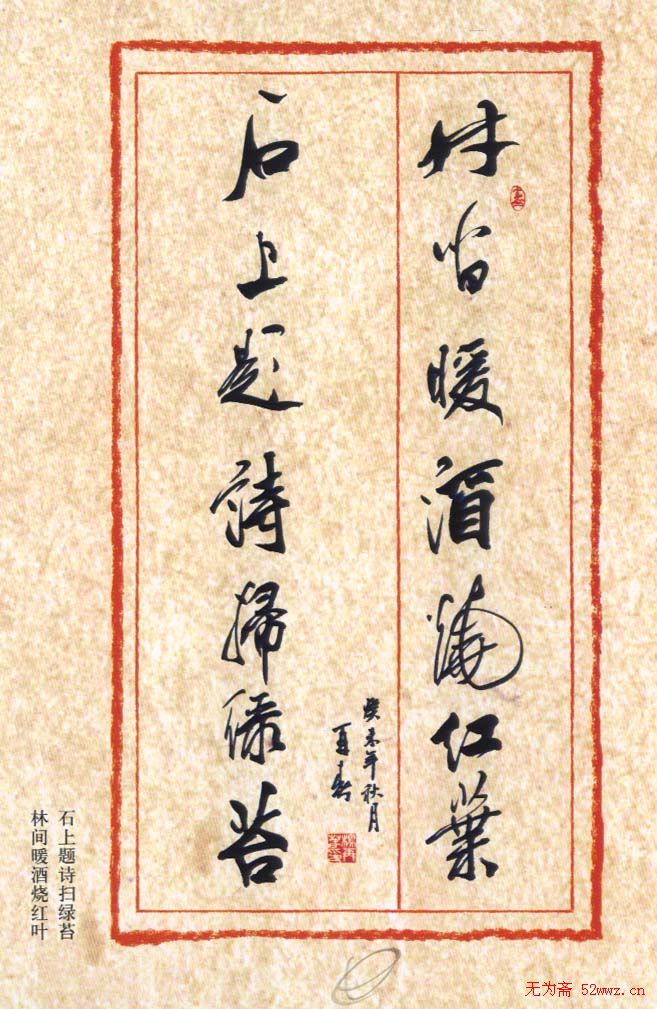 林间暖酒烧红葉
石上題詩掃绿苔
癸未年秋月
石上题诗扫绿苔
林间暖酒烧红叶
无为斋 52wwz.cn